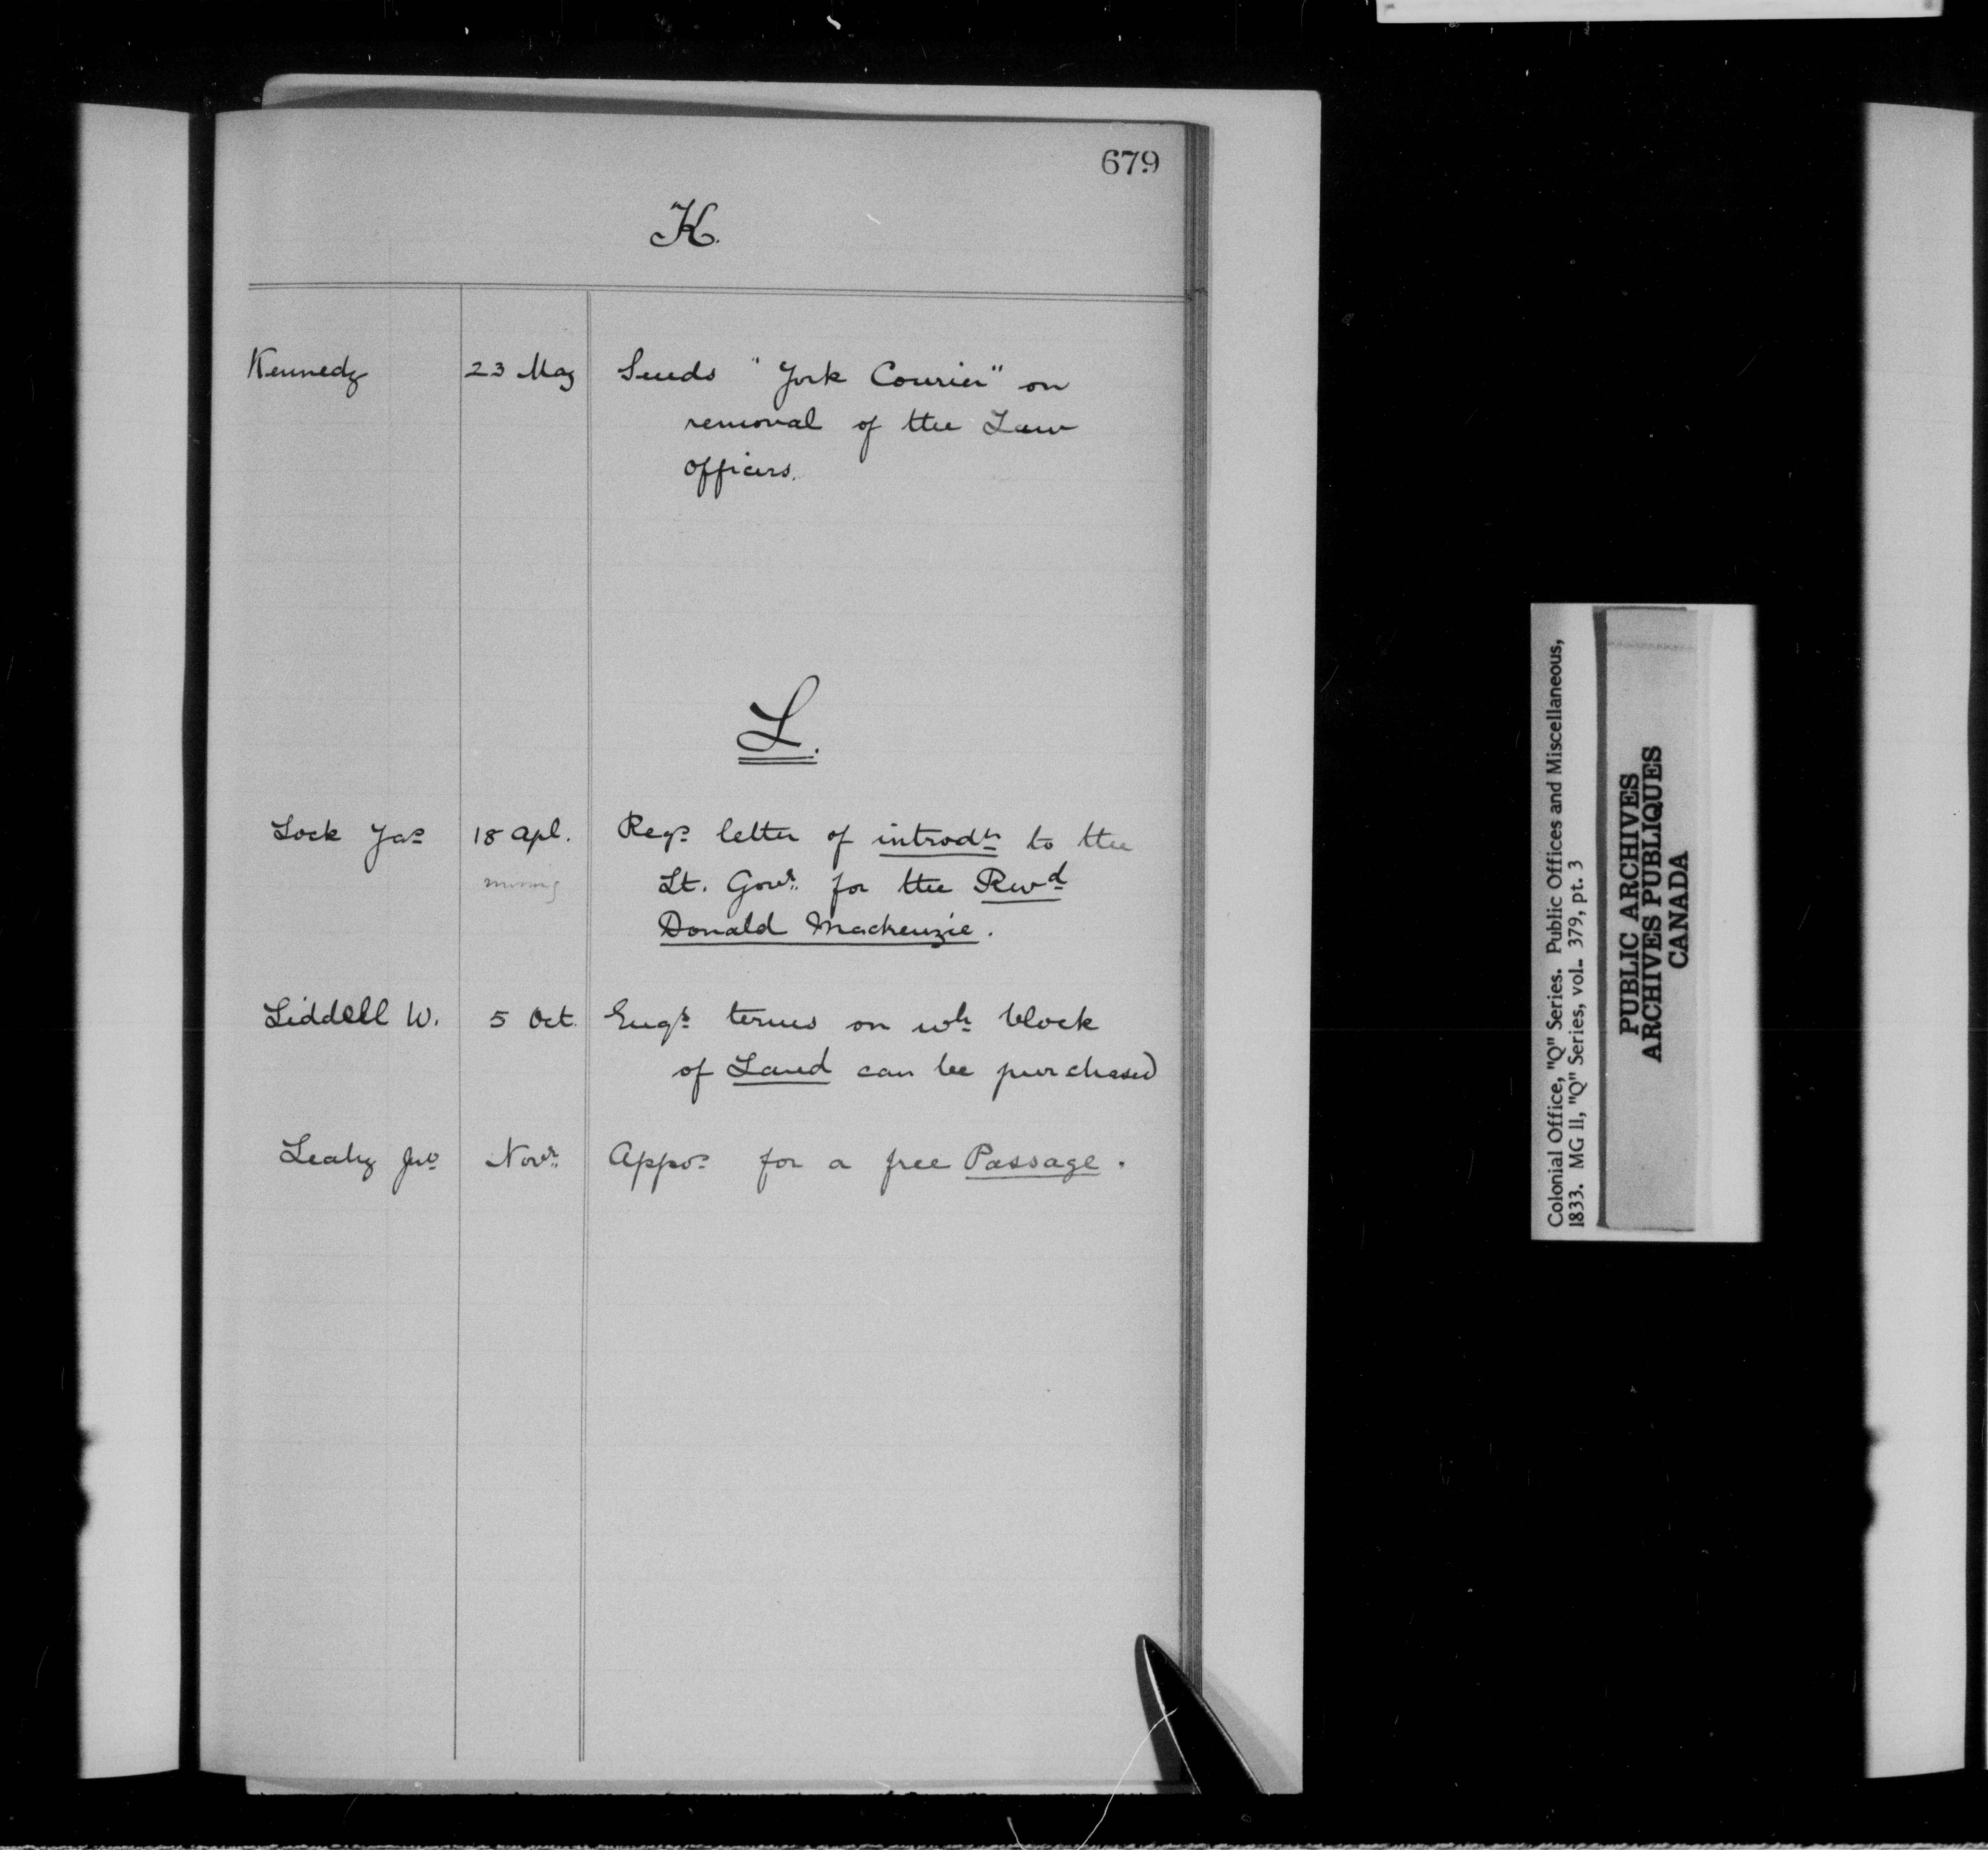 679
K.
Kennedy 23 May Sends "York Courier" on
removal of the Law
officers.
L.
Lock Jas 18 Apl. Reqs letter of introdn to the
missing Lt. Govr. for the Revd
Donald Mackenzie.
Liddell W. 5 Oct. Enqs terms on wh block
of Land can be purchased
Leahy Jno Novr. Appn for a free Passage.
Colonial Office, "Q" Series. Public Offices and Miscellaneous,
1833. MG 11, "Q" Series, vol. 379, pt. 3
PUBLIC ARCHIVES
ARCHIVES PUBLIQUES
CANADA